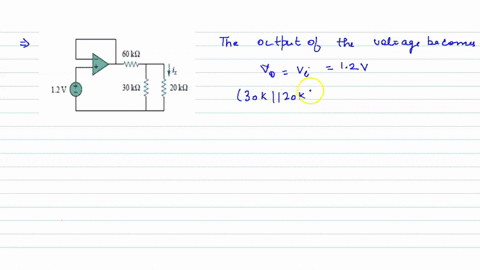 ⇒ The output of the voltage becomes
V₀ = Vᵢ = 1.2V
(30k||20k
60 kΩ
Iₓ
1.2 V
30 kΩ
20 kΩ